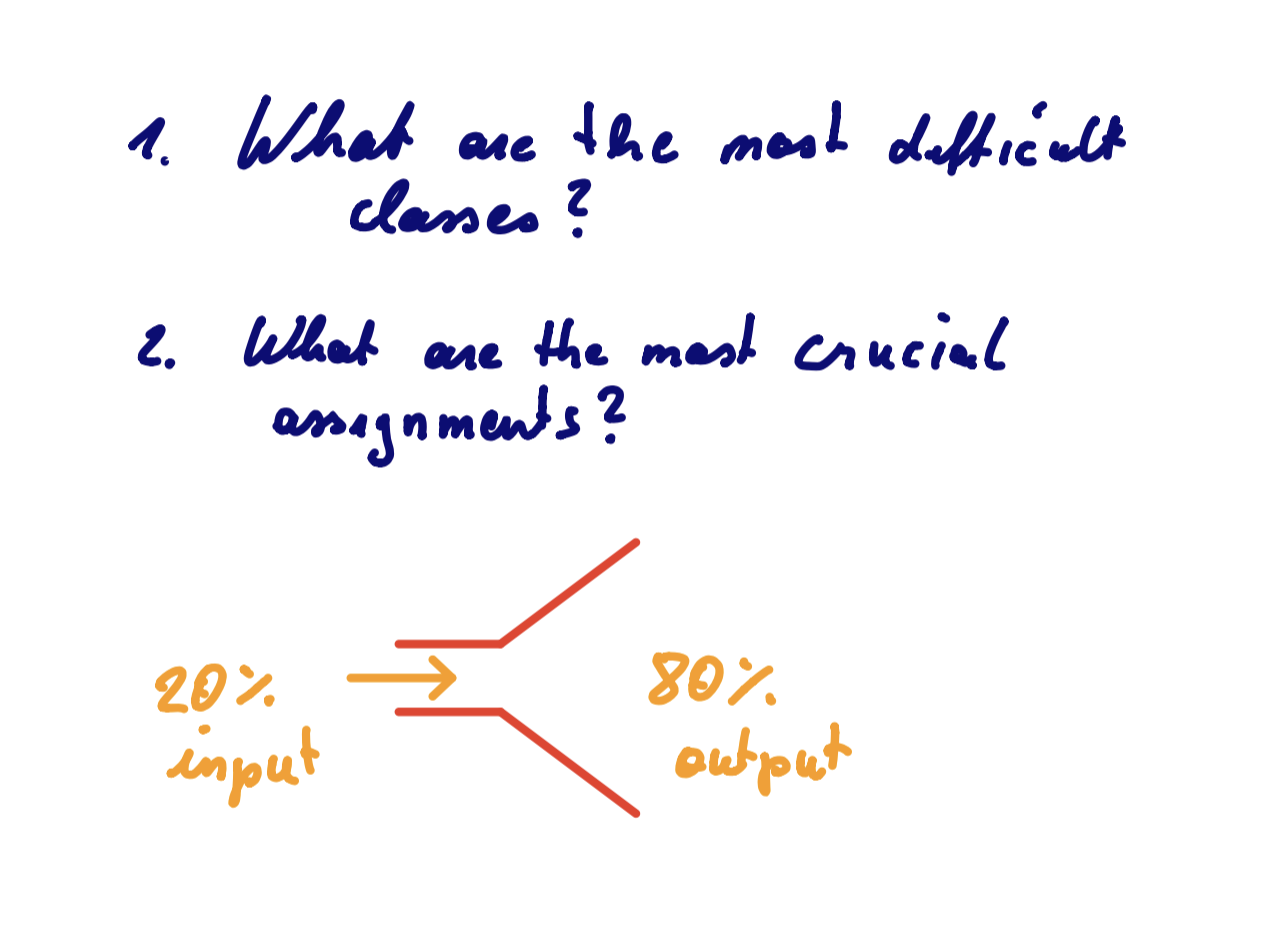 1. What are the most difficult
classes?
2. What are the most crucial
assignments?
20%
input
80%
output